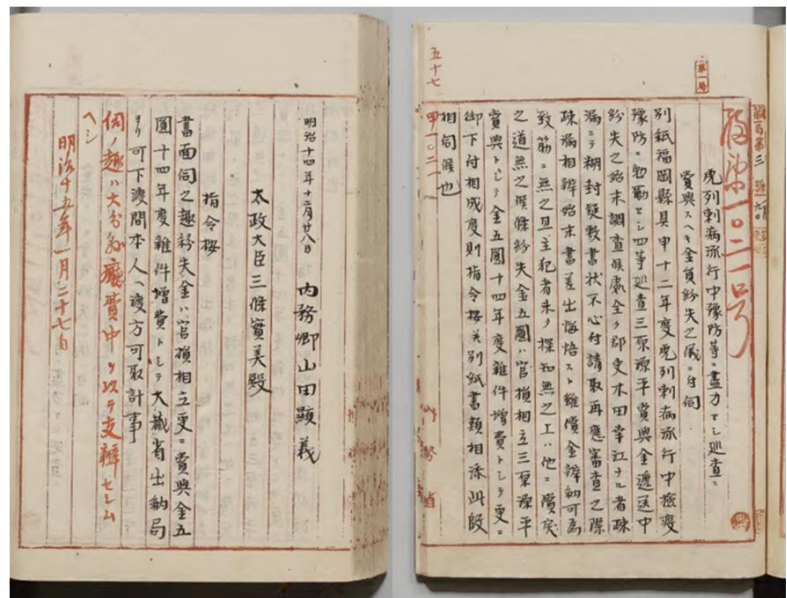 五十七
第一〇二一号
虎列刺病流行中豫防等ニ盡力セシ巡査ニ
賞與スヘキ金員紛失之儀ニ付伺
別紙福岡縣具申十二年度虎列刺病流行中檢疫
豫防ニ勉勵セシ四等巡査三原源平賞與金逓送中
紛失之始末調査候處全ク郡吏木田幸江ナル者疎
漏ニテ糊封疑敷書状不心付請取再應審査之際
疎漏相辨始末書差出悔悟スト雖償金辨納可為
致筋ニ無之且主犯者未タ探知無之上ハ他ニ償戻
之道無之候條紛失金五圓ハ官損相立三原源平
賞與トシテ金五圓十四年度雜件増費トシテ更ニ
御下付相成度則指令按并別紙書類相添此段
相伺候也
甲一〇二一
明治十四年十二月廿八日 内務卿山田顯義
太政大臣三條實美殿
指令按
書面伺之趣紛失金ハ官損相立更ニ賞與金五
圓十四年度雜件増費トシテ大藏省出納局
ヨリ可下渡間本人ヘ渡方可取計事
伺ノ趣ハ大分縣廳費中ヨリ以テ支辨セシム
ヘシ
明治十五年一月二十七日